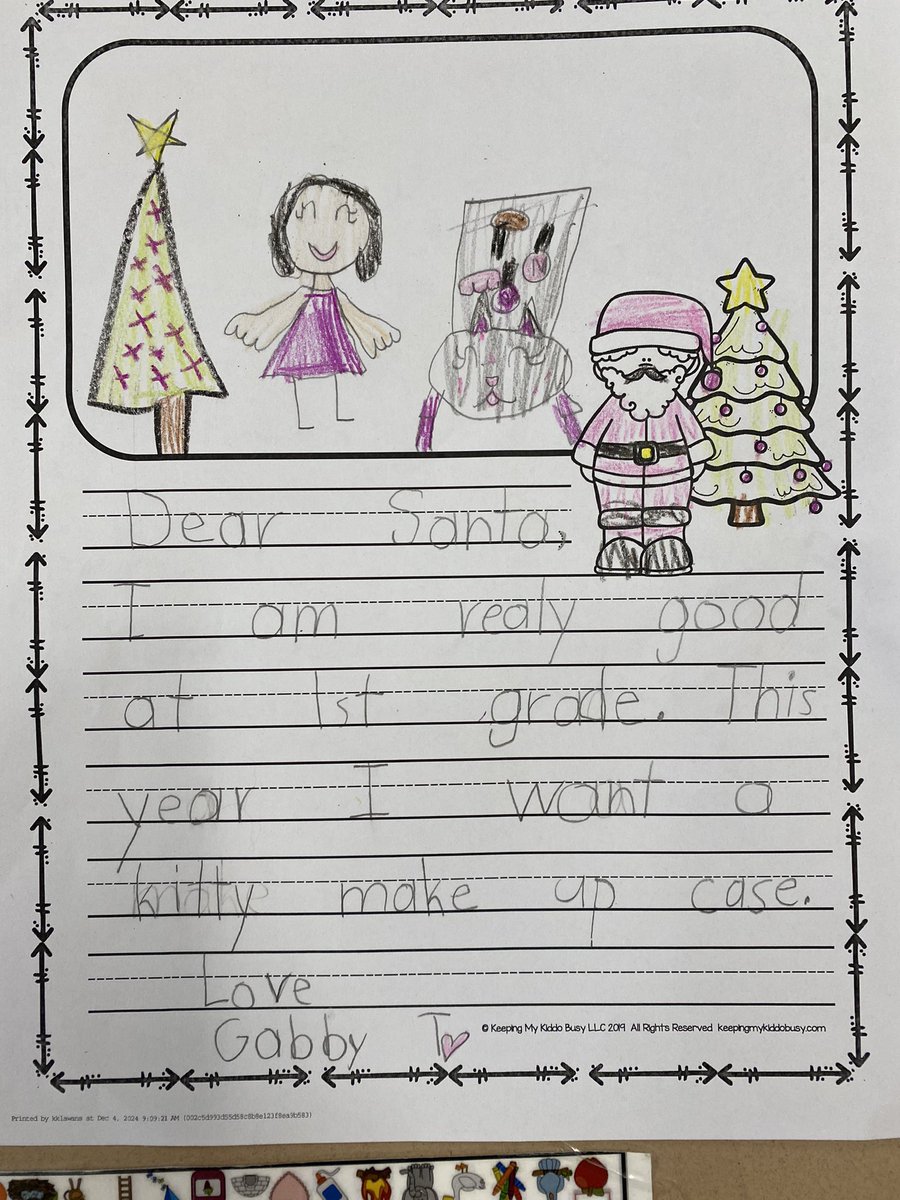 Dear Santa,
I am realy good
at 1st grade. This
year I want a
kritty make up case.
Love
Gabby T
© Keeping My Kiddo Busy LLC 2019 All Rights Reserved keepingmykiddobusy.com
Printed by kklawans at Dec 4, 2024 9:09:21 AM (002c5d993d55d58c8b8e123f8ea9b583)